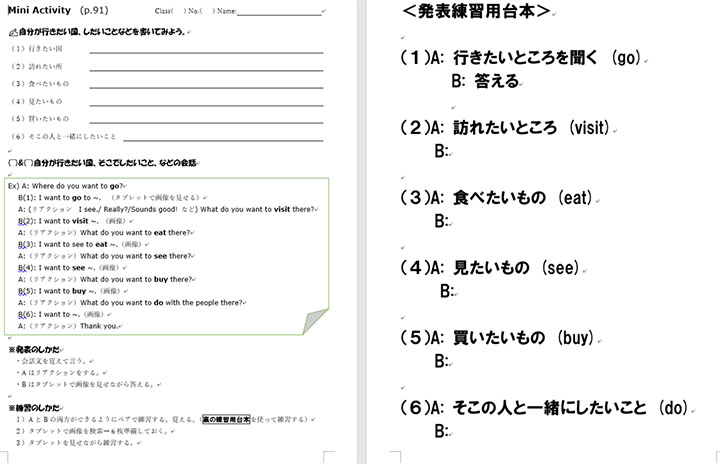 Mini Activity (p.91) Class( ) No.( ) Name:
自分が行きたい国、したいことなどを書いてみよう。
(1)行きたい国
(2)訪れたい所
(3)食べたいもの
(4)見たいもの
(5)買いたいもの
(6)そこの人と一緒にしたいこと
自分が行きたい国、そこでしたいこと、などの会話
Ex) A: Where do you want to go?
B(1): I want to go to ~. (タブレットで画像を見せる)
A: (リアクション I see./ Really?/Sounds good! など) What do you want to visit there?
B(2): I want to visit ~. (画像)
A: (リアクション) What do you want to eat there?
B(3): I want to see to eat ~. (画像)
A: (リアクション) What do you want to see there?
B(4): I want to see ~. (画像)
A: (リアクション) What do you want to buy there?
B(5): I want to buy ~. (画像)
A: (リアクション) What do you want to do with the people there?
B(6): I want to ~. (画像)
A: (リアクション) Thank you.
※発表のしかた
・会話文を覚えて言う。
・Aはリアクションをする。
・Bはタブレットで画像を見せながら答える。
※練習のしかた
1)AとBの両方ができるようにペアで練習する。覚える。(裏の練習用台本を使って練習する)
2)タブレットで画像を検索⇒6枚準備しておく。
3)タブレットを見せながら練習する。
<発表練習用台本>
(1)A: 行きたいところを聞く (go)
B: 答える
(2)A: 訪れたいところ (visit)
B:
(3)A: 食べたいもの (eat)
B:
(4)A: 見たいもの (see)
B:
(5)A: 買いたいもの (buy)
B:
(6)A: そこの人と一緒にしたいこと (do)
B: